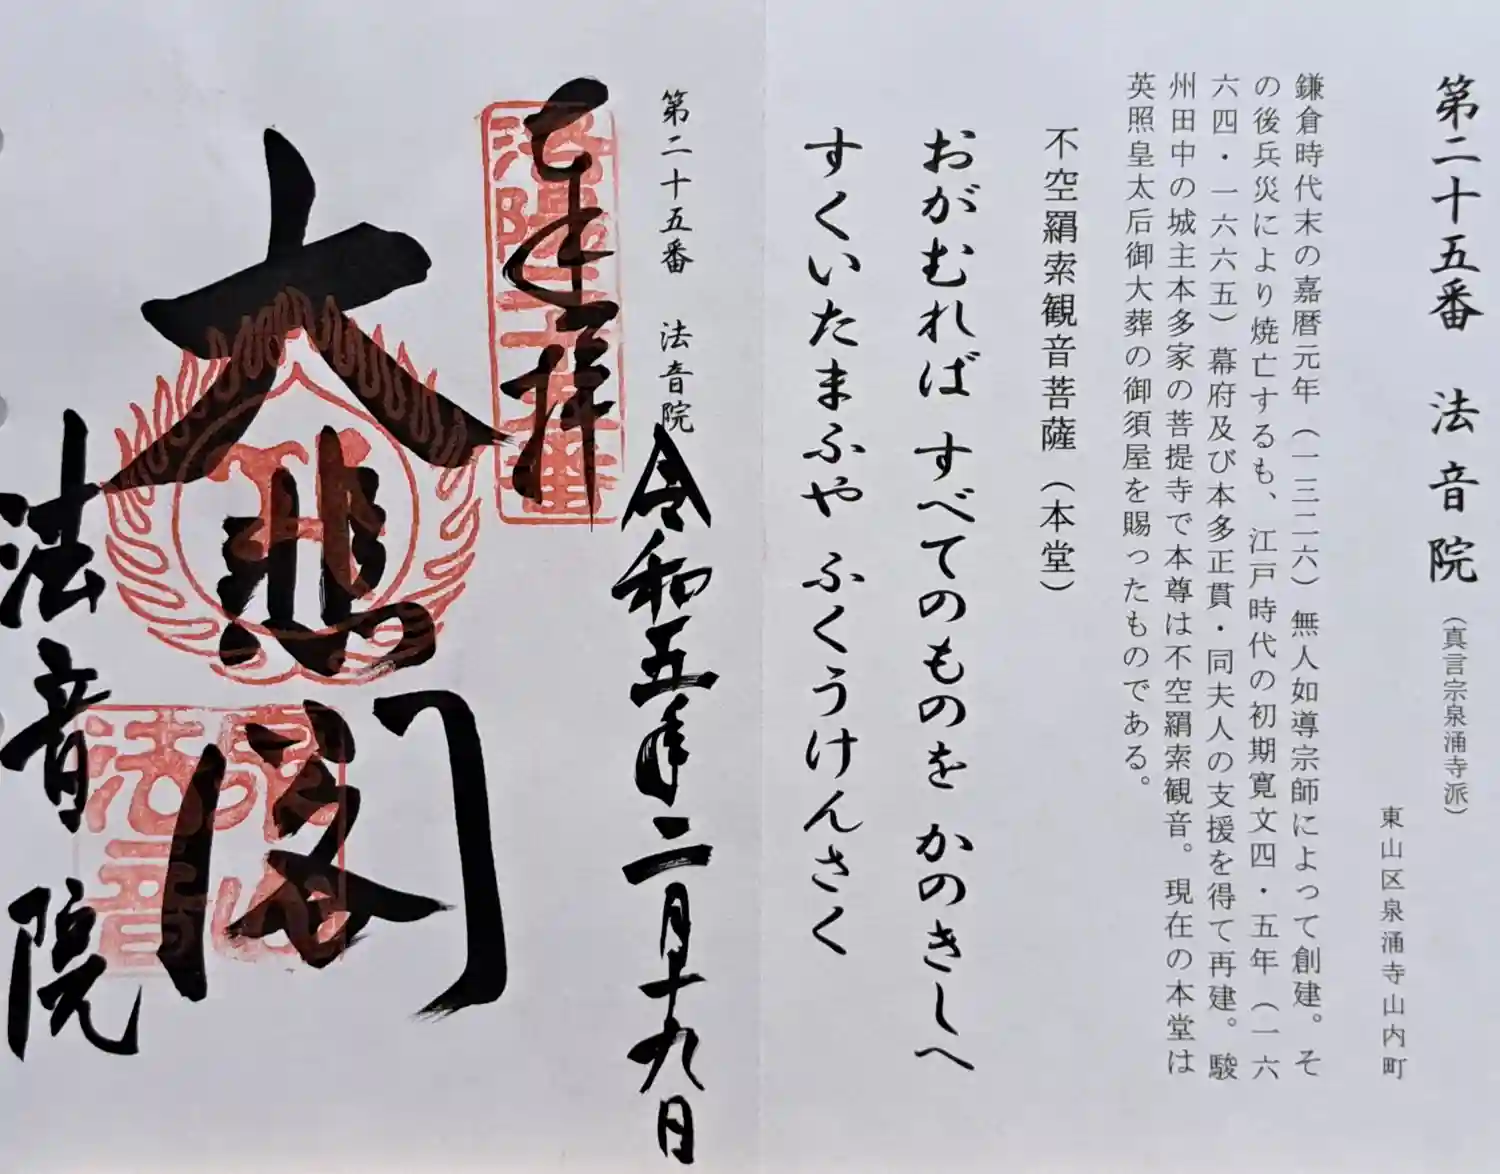 第二十五番 法音院（真言宗泉涌寺派）
東山区泉涌寺山内町
鎌倉時代末の嘉暦元年（一三二六）無人如導宗師によって創建。そ
の後兵災により焼亡するも、江戸時代の初期寛文四・五年（一六
六四・一六六五）幕府及び本多正貫・同夫人の支援を得て再建。駿
州田中の城主本多家の菩提寺で本尊は不空羂索観音。現在の本堂は
英照皇太后御大葬の御須屋を賜ったものである。
不空羂索観音菩薩（本堂）
おがむれば すべてのものを かのきしへ
すくいたまふや ふくうけんさく
第二十五番 法音院
令和五年二月十九日
奉拝
洛陽二十五番
大悲閣
泉山
法音
法音院